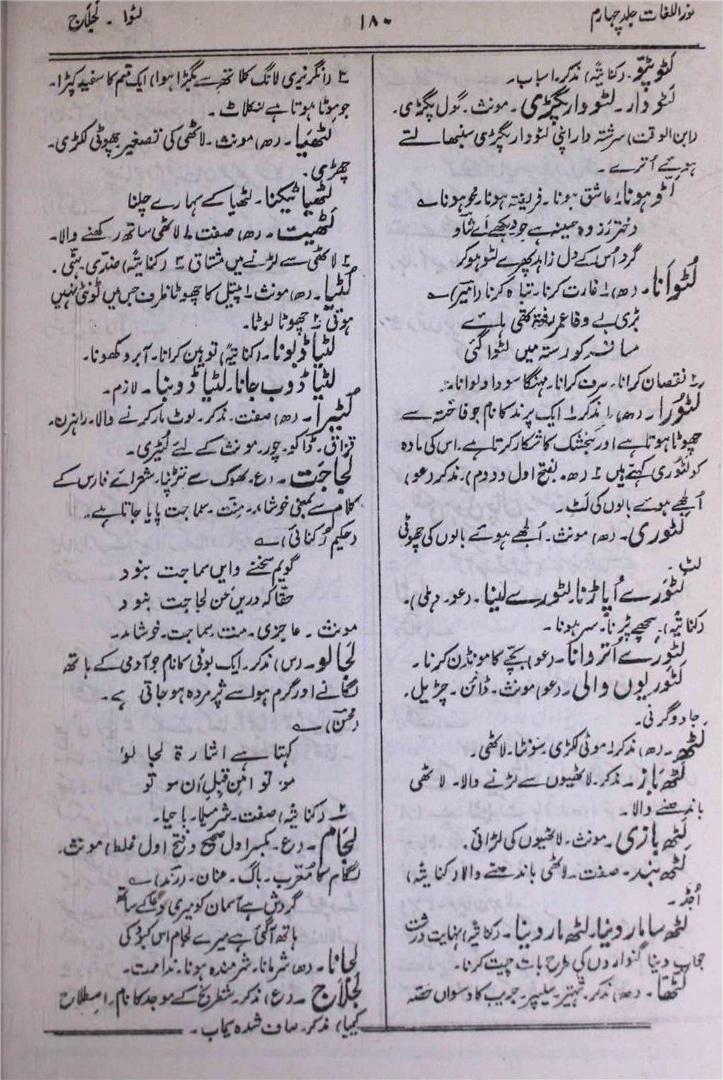 نور اللغات جلد چہارم
۱۸۰
لٹوا ۔ لجلاج
لٹو پٹو۔ (کنایۃً) مذکر۔ اسباب۔
لٹو دار۔ لٹو دار پگڑی۔ مونث۔ گول پگڑی۔
(ابن الوقت) سرشتہ دار اپنی لٹو دار پگڑی سنبھالتے
ہوئے اُترے۔
لٹو ہونا۔ عاشق ہونا۔ فریفتہ ہونا۔ محو ہونا ؎
دختر رز وہ حسینہ ہے جو دیکھے اے شاد
گرد اُس کے دل زاہد پھرے لٹو ہو کر
لُٹوانا۔ (ھ) ۱ غارت کرنا۔ تباہ کرنا (امیر) ؎
بڑی بے وفا عمر رفتہ تھی ہائے
مسافر کو رستہ میں لٹوا گئی
۲ نقصان کرانا۔ صرف کرانا۔ مہنگا سودا دلوانا۔
لٹورا۔ (ھ) مذکر ۱ ایک پرند کا نام جو فاختہ سے
چھوٹا ہوتا ہے اور کنجشک کا شکار کرتا ہے۔ اس کی مادہ
کو لٹوری کہتے ہیں ۲ (ھ۔ بفتح اول و دوم) مذکر (عو)
اُلجھے ہوئے بالوں کی لٹ۔
لٹوری۔ (ھ) مونث۔ اُلجھے ہوئے بالوں کی چھوٹی
لٹ۔
لٹورے اُپاڑنا۔ لٹورے لینا۔ (عو۔ دہلی)۔
(کنایۃً) پیچھے پڑنا۔ سر ہونا۔
لٹورے اُتروانا۔ (عو) بچے کا مونڈن کرنا۔
لٹوریوں والی۔ (عو) مونث۔ ڈائن۔ چڑیل۔
جادوگرنی۔
لٹھ۔ (ھ) مذکر۔ موٹی لکڑی۔ سونٹا۔ لاٹھی۔
لٹھ باز۔ مذکر۔ لاٹھیوں سے لڑنے والا۔ لاٹھی
باندھنے والا۔
لٹھ بازی۔ مونث۔ لاٹھیوں کی لڑائی۔
لٹھ بند۔ صفت۔ لاٹھی باندھنے والا (کنایۃً)
اُجڈ۔
لٹھ سا مار دینا۔ لٹھ مار دینا۔ (کنایۃً) نہایت درشت
جواب دینا گنواروں کی طرح بات چیت کرنا۔
لٹھا۔ (ھ) مذکر۔ شہتیر۔ سلیپر۔ جریب کا دسواں حصہ
۲ (انگریزی لانگ کلاتھ سے بگڑا ہوا) ایک قسم کا سفید کپڑا۔
جو موٹا ہوتا ہے لنکلاٹ۔
لٹھیا۔ (ھ) مونث۔ لاٹھی کی تصغیر چھوٹی لکڑی۔
چھڑی۔
لٹھیا ٹیکنا۔ لٹھیا کے سہارے چلنا
لٹھیت۔ (ھ) صفت ۱ لاٹھی ساتھ رکھنے والا۔
۲ لاٹھی سے لڑنے میں مشتاق ۳ (کنایۃً) ضدی۔ ہٹی۔
لٹیا۔ (ھ) مونث۔ ۱ پیتل کا چھوٹا ظرف جس میں ٹونٹی نہیں
ہوتی ۲ چھوٹا لوٹا۔
لٹیا ڈبونا۔ (کنایۃً) توہین کرانا۔ آبرو کھونا۔
لٹیا ڈوب جانا۔ لٹیا ڈوبنا۔ لازم۔
لٹیرا۔ (ھ) صفت۔ مذکر۔ لوٹ مار کرنے والا۔ راہزن۔
قزاق۔ ڈاکو۔ چور۔ مونث کے لئے لٹیری۔
لجاجت۔ (ع۔ بھوک سے تڑپنا۔ شعرائے فارس کے
کلام سے بمعنی خوشامد۔ منت۔ سماجت پایا جاتا ہے۔
ؔ(حکیم) ؎
گویم سخنے و ایں سماجت نبود
حقا کہ دریں سخن لجاجت نبود
مونث۔ عاجزی۔ منت۔ سماجت۔ خوشامد۔
لجالو۔ (س) مذکر۔ ایک بوٹی کا نام جو آدمی کے ہاتھ
لگانے اور گرم ہوا سے پژمردہ ہو جاتی ہے۔
(محسن) ؎
کہتا ہے اشارۃ لجالو
موتو امن قبل ان موتو
۲ (کنایۃً) صفت۔ شرمیلا۔ باحیا۔
لجام۔ (ع۔ بکسر اول صحیح و فتح اول غلط) مونث۔
لگام کا معرب۔ باگ۔ عنان۔ (رند) ؎
گردش ہے آسمان کو میری وفا کے ساتھ
ہاتھ آ گئی ہے میرے لجام اس کبود کی
لجانا۔ (ھ) شرمانا۔ شرمندہ ہونا۔ ندامت۔
لجلاج۔ (ع) مذکر۔ شطرنج کے موجد کا نام۔ اصطلاح
کیمیا) مذکر۔ صاف شدہ سیماب۔